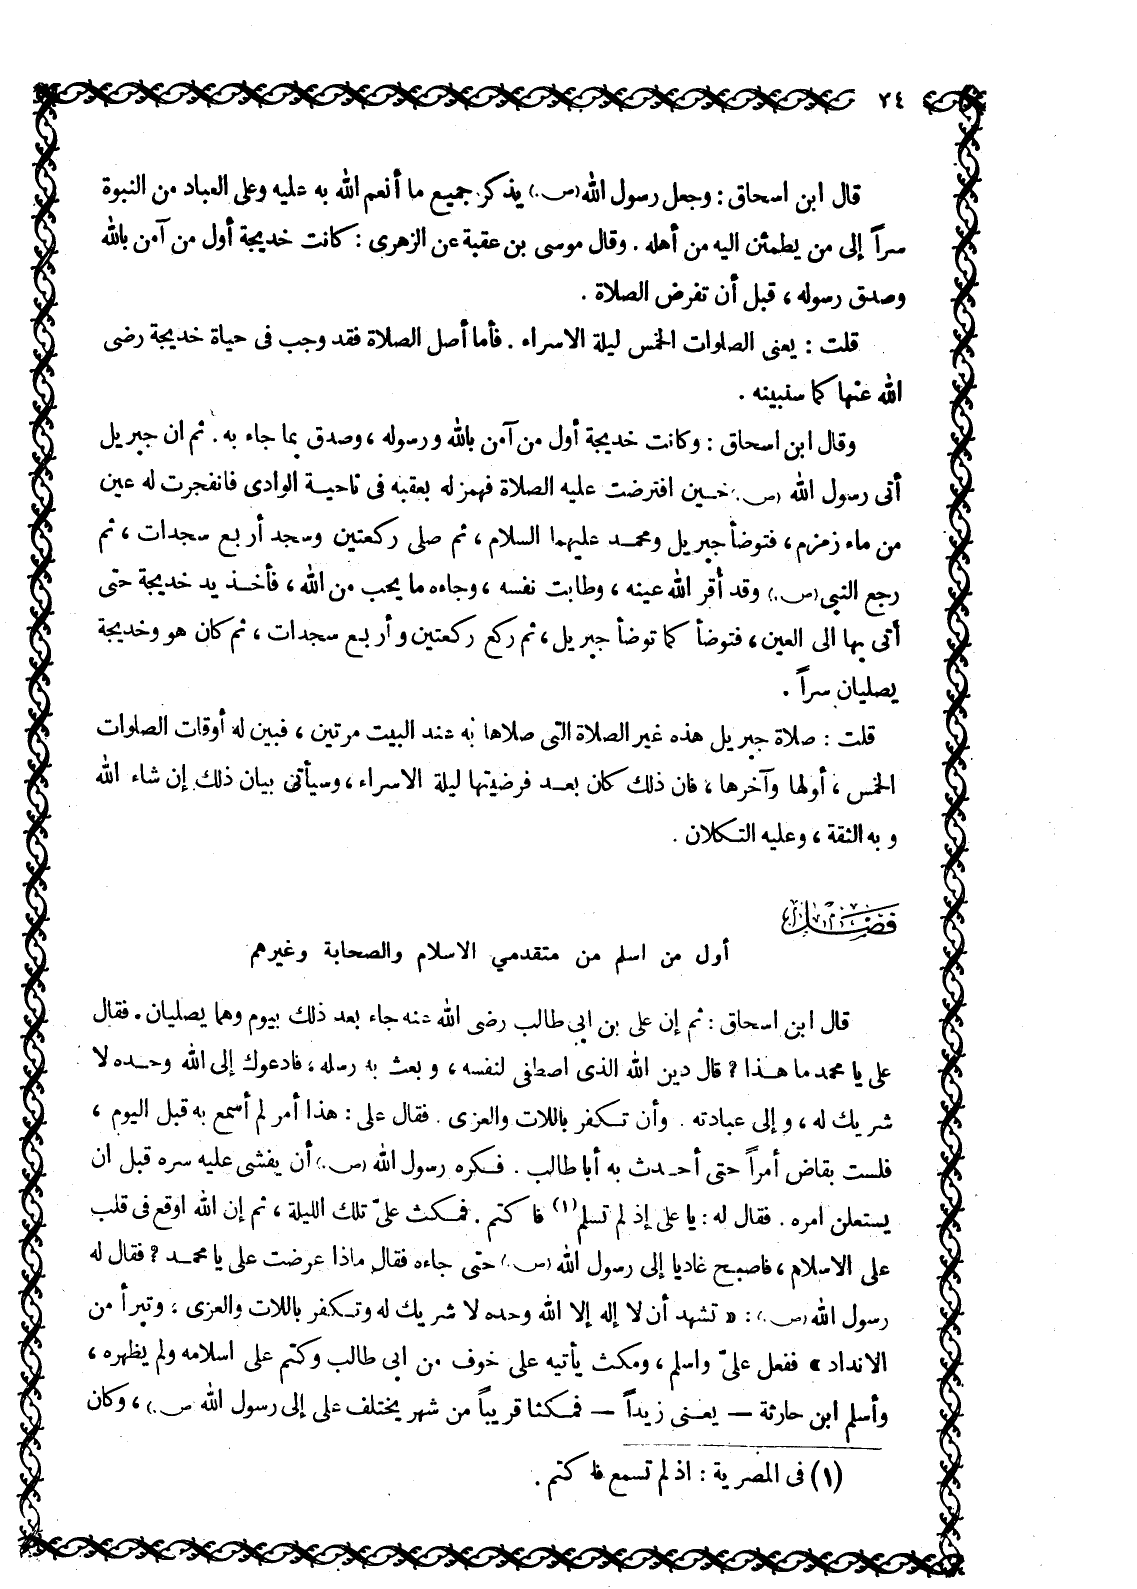 ٢٤
قال ابن اسحاق : وجعل رسول الله (ص.) يذكر جميع ما أنعم الله به عليه وعلى العباد من النبوة
سراً إلى من يطمئن اليه من أهله . وقال موسى بن عقبة عن الزهرى : كانت خديجة أول من آمن بالله
وصدق رسوله ، قبل أن تفرض الصلاة .
قلت : يعنى الصلوات الخمس ليلة الاسراء . فأما أصل الصلاة فقد وجب فى حياة خديجة رضى
الله عنها كما سنبينه .
وقال ابن اسحاق : وكانت خديجة أول من آمن بالله ورسوله ، وصدق بما جاء به . ثم ان جبريل
أتى رسول الله (ص.) حين افترضت عليه الصلاة فهمز له بعقبه فى ناحية الوادى فانفجرت له عين
من ماء زمزم ، فتوضأ جبريل ومحمد عليهما السلام ، ثم صلى ركعتين وسجد أربع سجدات ، ثم
رجع النبى (ص.) وقد أقر الله عينه ، وطابت نفسه ، وجاءه ما يحب من الله ، فأخذ يد خديجة حتى
أتى بها الى العين ، فتوضأ كما توضأ جبريل ، ثم ركع ركعتين وأربع سجدات ، ثم كان هو وخديجة
يصليان سراً .
قلت : صلاة جبريل هذه غير الصلاة التى صلاها به عند البيت مرتين ، فبين له أوقات الصلوات
الخمس ، أولها وآخرها ، فان ذلك كان بعد فرضيتها ليلة الاسراء ، وسيأتى بيان ذلك إن شاء الله
وبه الثقة ، وعليه التكلان .
فصل
أول من اسلم من متقدمي الاسلام والصحابة وغيرهم
قال ابن اسحاق : ثم إن على بن ابى طالب رضى الله عنه جاء بعد ذلك بيوم وهما يصليان . فقال
على يا محمد ما هذا ? قال دين الله الذى اصطفى لنفسه ، وبعث به رسله ، فادعوك إلى الله وحده لا
شريك له ، وإلى عبادته . وأن تكفر باللات والعزى . فقال على : هذا أمر لم أسمع به قبل اليوم ،
فلست بقاض أمراً حتى أحدث به أبا طالب . فكره رسول الله (ص.) أن يفشى عليه سره قبل ان
يستعلن امره . فقال له : يا على إذ لم تسلم (١) فاكتم . فمكث علىّ تلك الليلة ، ثم إن الله اوقع فى قلب
على الاسلام ، فاصبح غاديا إلى رسول الله (ص.) حتى جاءه فقال ماذا عرضت على يا محمد ? فقال له
رسول الله (ص.) : « تشهد أن لا إله إلا الله وحده لا شريك له وتكفر باللات والعزى ، وتبرأ من
الانداد » ففعل علىّ واسلم ، ومكث يأتيه على خوف من ابى طالب وكتم على اسلامه ولم يظهره ،
وأسلم ابن حارثة — يعنى زيداً — فمكثا قريباً من شهر يختلف على إلى رسول الله (ص.) ، وكان
(١) فى المصرية : اذ لم تسمع فاكتم .